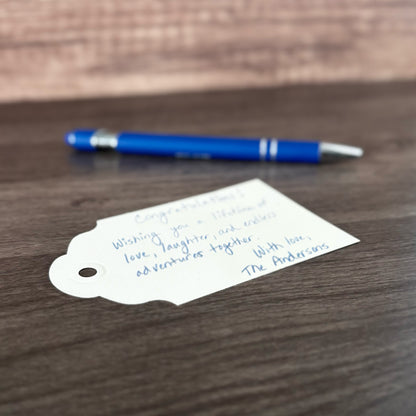 Congratulations!
Wishing you a lifetime of
love, laughter, and endless
adventures together.
With love,
The Andersons